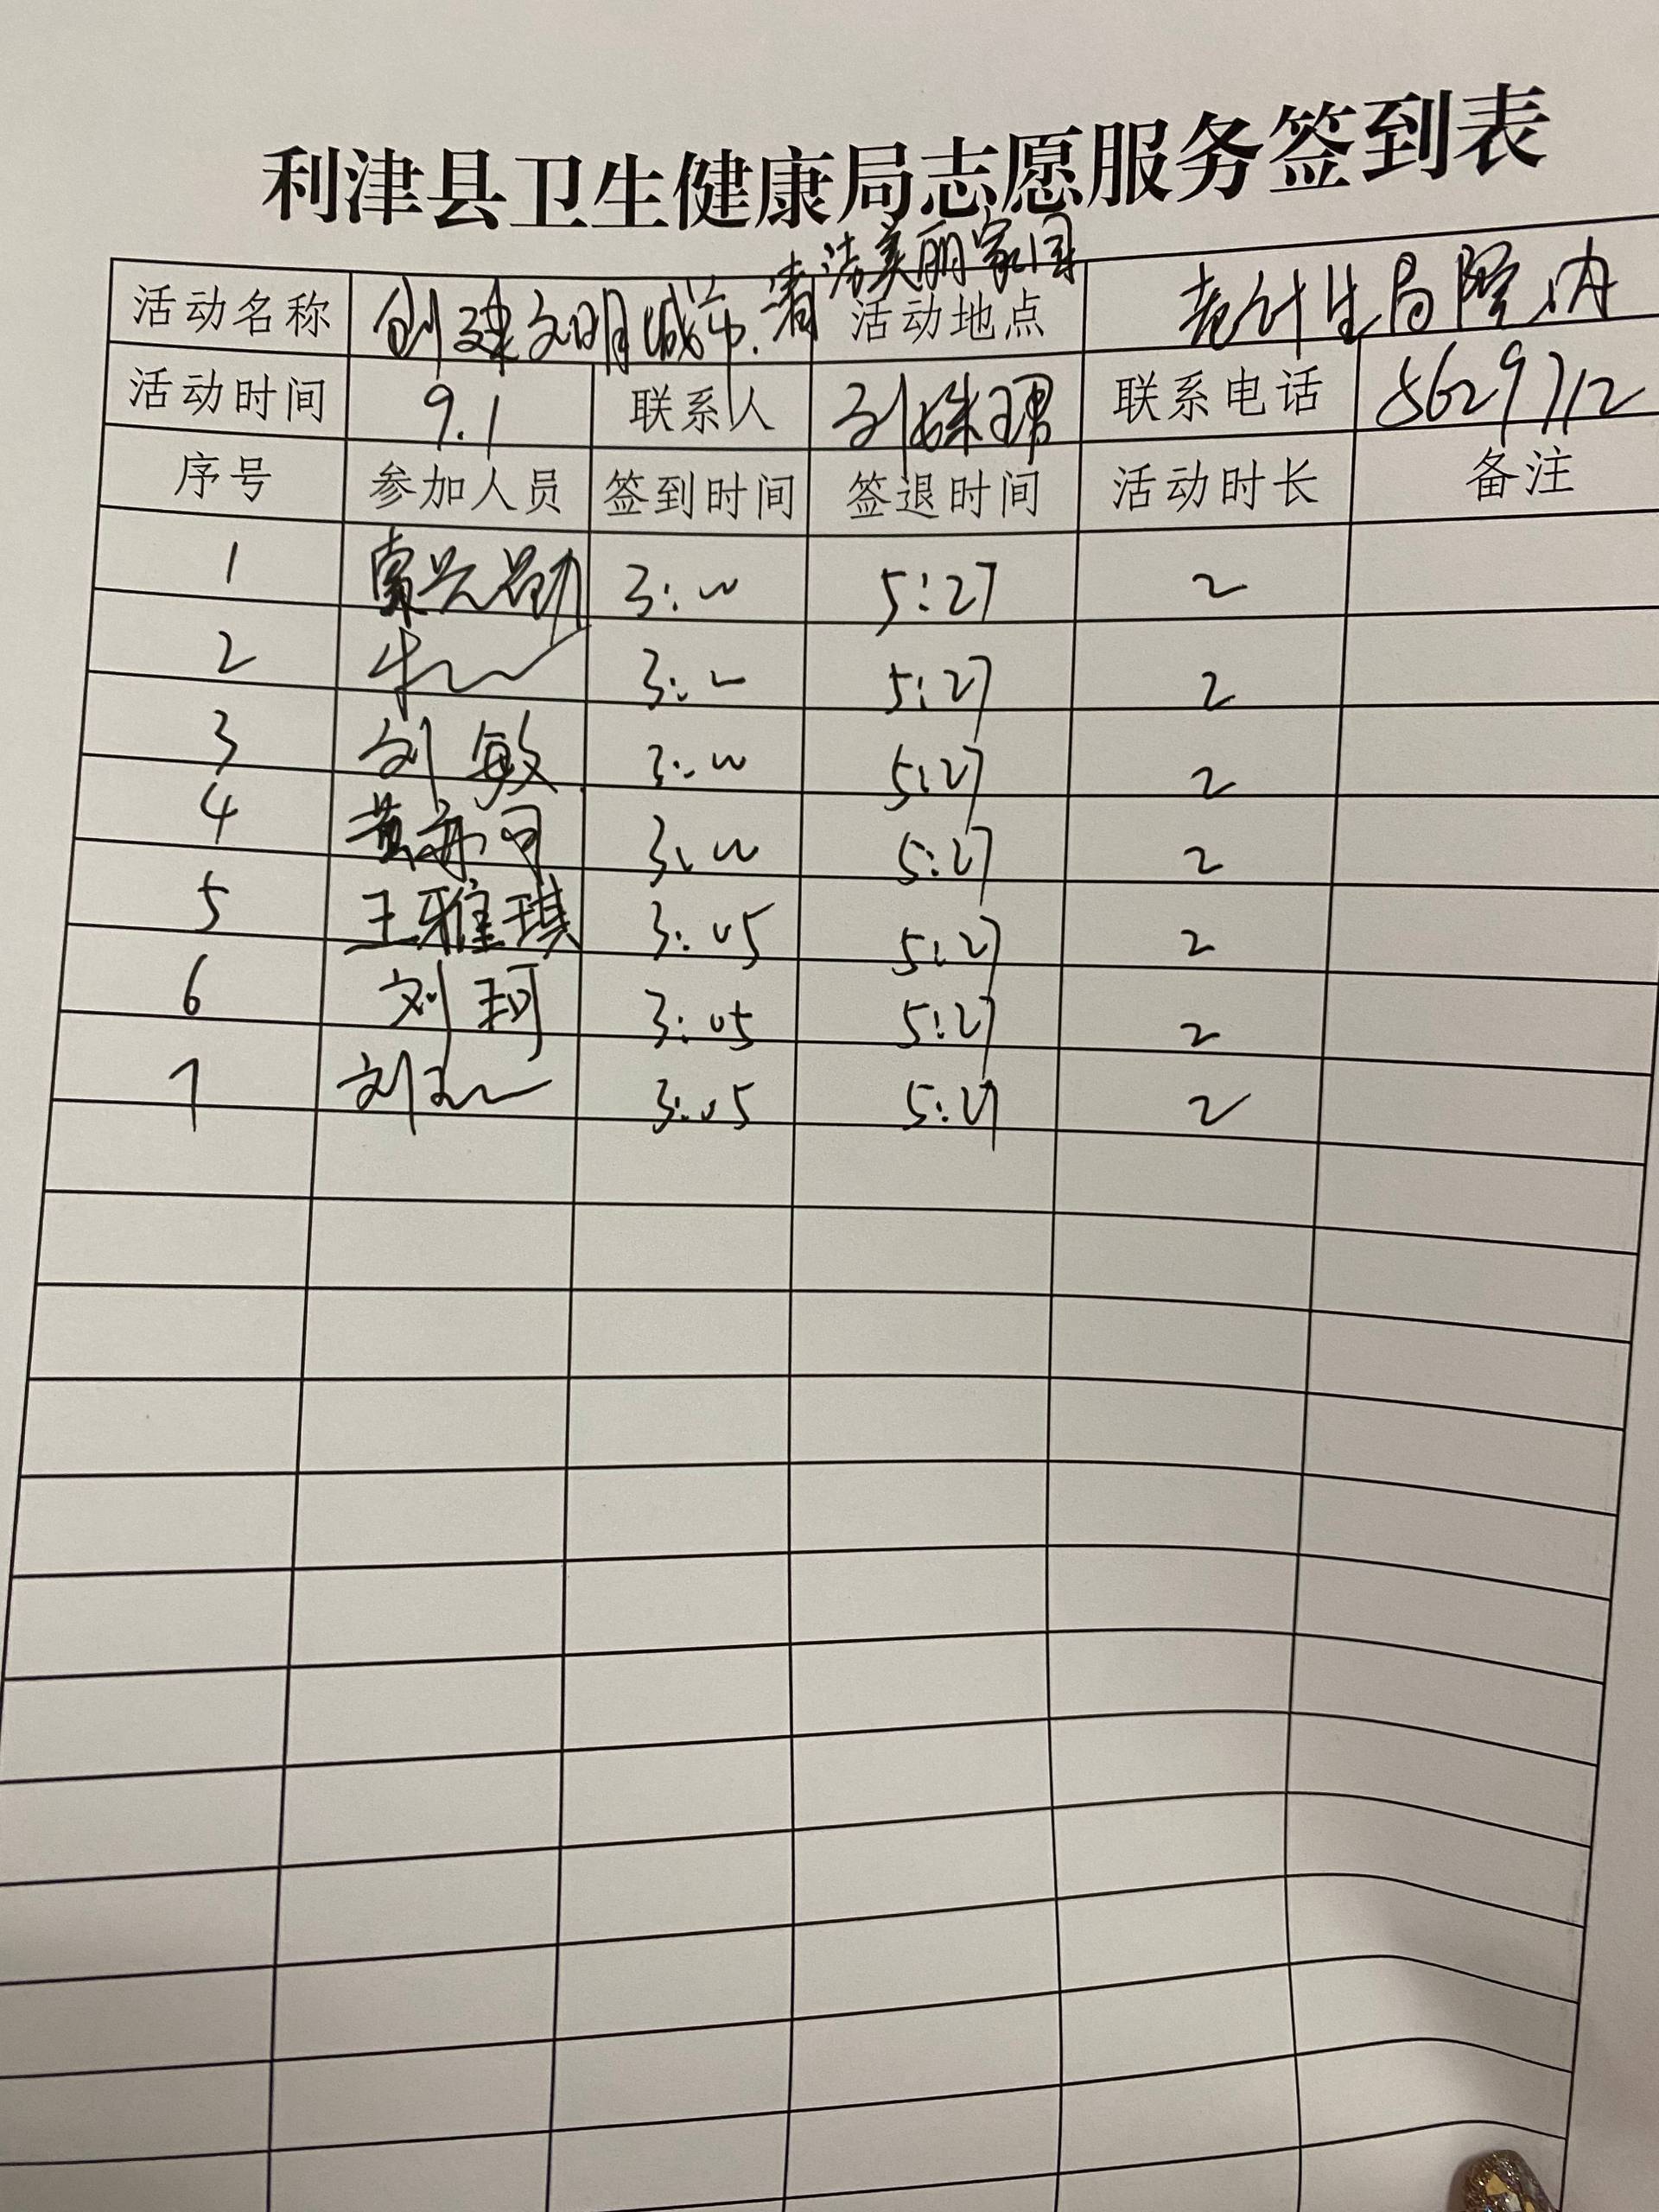 利津县卫生健康局志愿服务签到表
活动名称 创建文明城市、清洁美丽家园 活动地点 老计生局院内
活动时间 9.1 联系人 刘姝珺 联系电话 5629712
序号 参加人员 签到时间 签退时间 活动时长 备注
1 3:00 5:27 2
2 3:00 5:27 2
3 刘敏 3:00 5:27 2
4 3:00 5:27 2
5 王雅琪 3:05 5:27 2
6 刘珂 3:05 5:27 2
7 刘 3:05 5:27 2